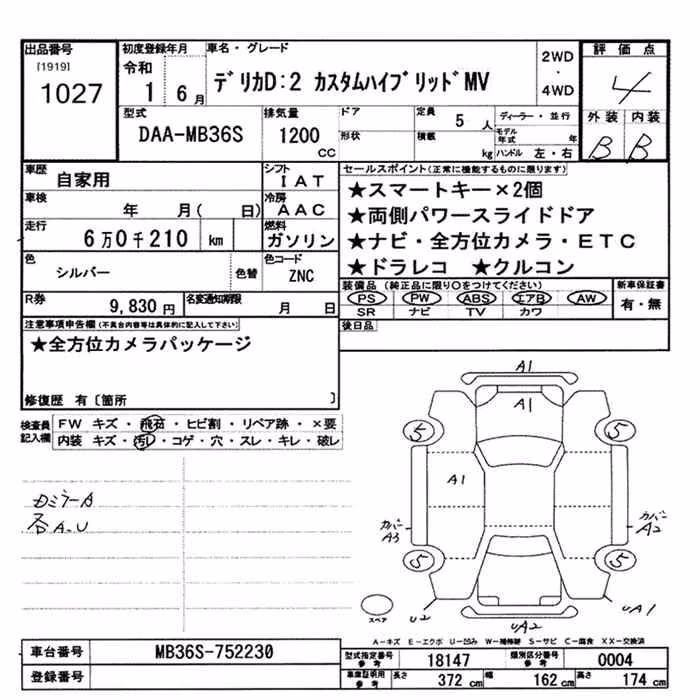 出品番号
[1919]
1027
初度登録年月
令和
1 6月
車名・グレード
デリカD:2 カスタムハイブリッドMV
2WD
・
4WD
評価点
4
型式
DAA-MB36S
排気量
1200
CC
ドア
形状
定員
5 人
積載
kg
ディーラー・並行
モデル年式 年
ハンドル 左・右
外装 内装
B B
車歴
自家用
シフト
IAT
車検
年 月( 日)
冷房
AAC
走行
6万0千210 km
燃料
ガソリン
色
シルバー
色替
色コード
ZNC
R券
9,830円
名変通知期限
月 日
セールスポイント(正常に機能するものに限ります)
★スマートキー×2個
★両側パワースライドドア
★ナビ・全方位カメラ・ETC
★ドラレコ ★クルコン
装備品 (純正品に限り○をつけてください)
PS PW ABS エアB AW
SR ナビ TV カワ
新車保証書
有・無
後日品
注意事項申告欄(不具合内容等は具体的に記入して下さい)
★全方位カメラパッケージ
修復歴 有〔箇所 〕
検査員記入欄
FW キズ・飛石・ヒビ割・リペア跡・×要
内装 キズ・汚レ・コゲ・穴・スレ・キレ・破レ
ロミラーA
各A.U
A1
A1
5
5
A1
カバー
A3
カバー
A2
5
5
スペア
U2
UA2
UA1
A-キズ E-エクボ U-凹み W-補修跡 S-サビ C-腐食 XX-交換済
車台番号
MB36S-752230
登録番号
型式指定番号
参考
18147
類別区分番号
参考
0004
車庫証明用
参考
長さ
372 cm
幅
162 cm
高さ
174 cm